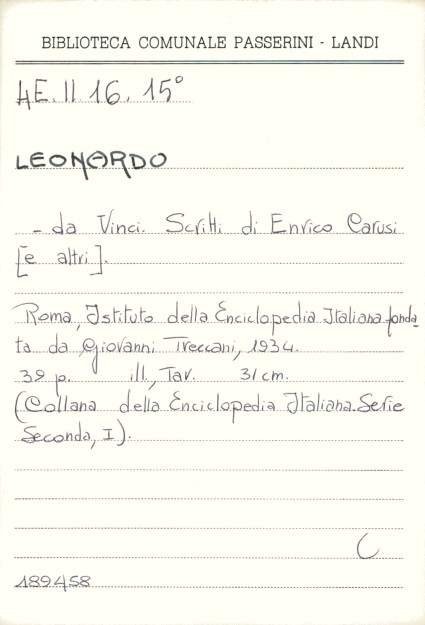 BIBLIOTECA COMUNALE PASSERINI - LANDI
4E.II.16.15°
LEONARDO
- da Vinci. Scritti di Enrico Carusi
[e altri].
Roma, Istituto della Enciclopedia Italiana fonda_
ta da Giovanni Treccani, 1934.
39 p. ill., Tav. 31 cm.
(Collana della Enciclopedia Italiana. Serie
Seconda, I).
C
189458